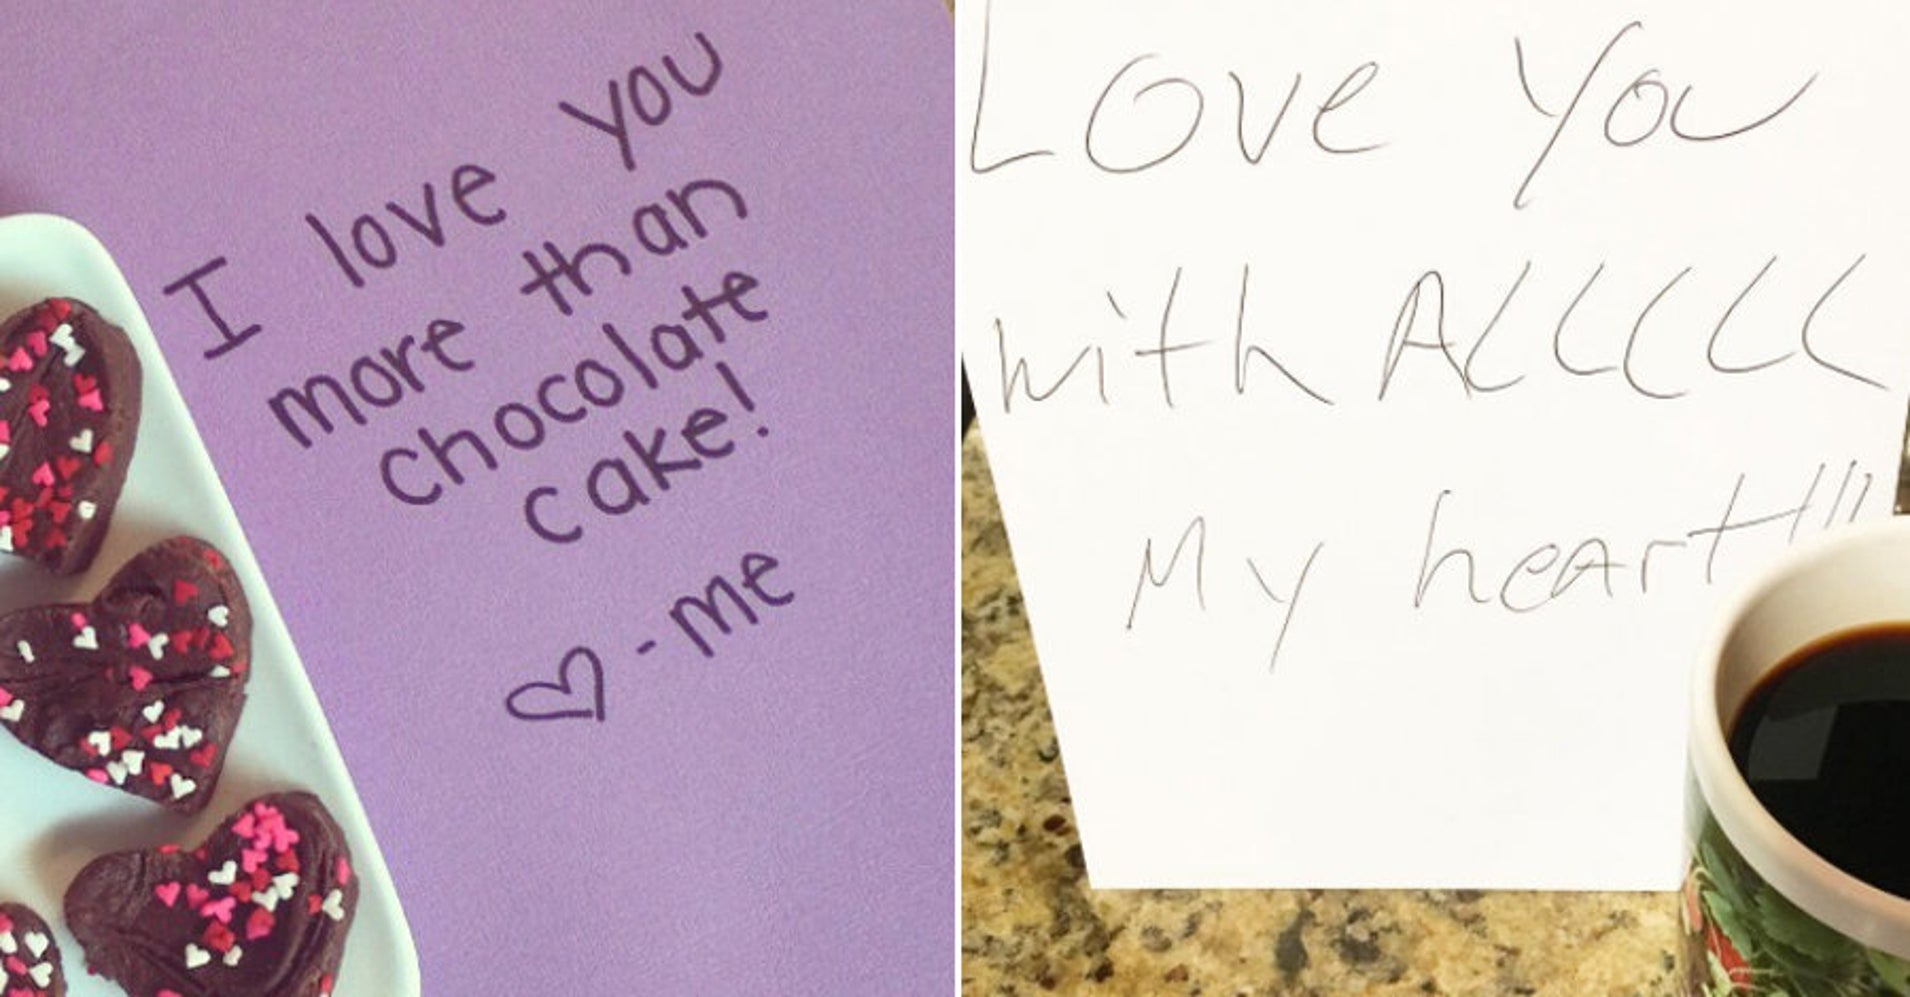 I love you
more than
chocolate
cake!
♡-me
Love You
with ALLLLL
My heart!!!